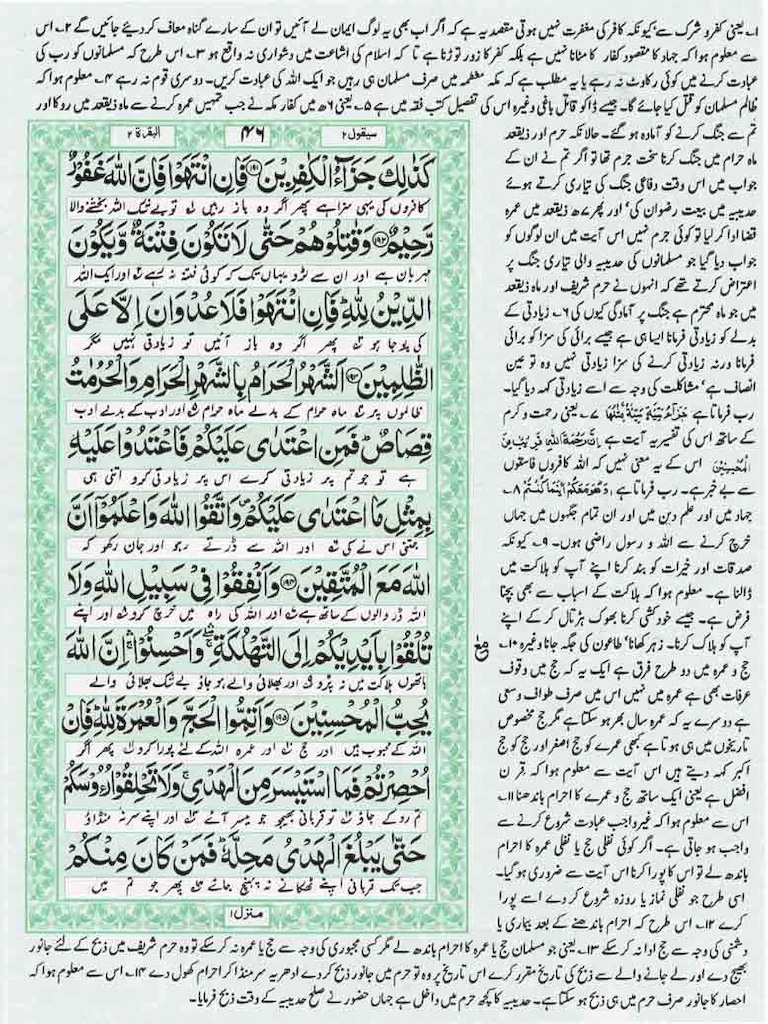 ۱۔ یعنی کفر و شرک سے، کیونکہ کافر کی مغفرت نہیں ہوتی مقصد یہ ہے کہ اگر اب بھی یہ لوگ ایمان لے آئیں تو ان کے سارے گناہ معاف کر دیئے جائیں گے ۲۔ اس
سے معلوم ہوا کہ جہاد کا مقصود کفار کا مٹانا نہیں ہے بلکہ کفر کا زور توڑنا ہے تا کہ اسلام کی اشاعت میں دشواری نہ واقع ہو ۳۔ اس طرح کہ مسلمانوں کو رب کی
عبادت کرنے میں کوئی رکاوٹ نہ رہے یا یہ مطلب ہے کہ مکہ معظمہ میں صرف مسلمان ہی رہیں جو ایک اللہ کی عبادت کریں۔ دوسری قوم نہ رہے ۴۔ معلوم ہوا کہ
ظالم مسلمان کو قتل کیا جائے گا۔ جیسے ڈاکو قاتل باغی وغیرہ اس کی تفصیل کتب فقہ میں ہے ۵۔ یعنی ۶ھ میں کفار مکہ نے جب تمہیں عمرہ کرنے سے ماہ ذیقعد میں روکا اور
تم سے جنگ کرنے کو آمادہ ہو گئے۔ حالانکہ حرم اور ذیقعد
ماہ حرام میں جنگ کرنا سخت جرم تھا تو اگر تم نے ان کے
جواب میں اس وقت دفاعی جنگ کی تیاری کرتے ہوئے
حدیبیہ میں بیعت رضوان کی، اور پھر ۷ھ ذیقعد میں عمرہ
قضا ادا کر لیا تو کوئی جرم نہیں اس آیت میں ان لوگوں کو
جواب دیا گیا جو مسلمانوں کی حدیبیہ والی تیاری جنگ پر
اعتراض کرتے تھے کہ انہوں نے حرم شریف اور ماہ ذیقعد
میں جو ماہ محترم ہے جنگ پر آمادگی کیوں کی ۶۔ زیادتی کے
بدلے کو زیادتی فرمانا ایسا ہی ہے جیسے برائی کی سزا کو برائی
فرمانا ورنہ زیادتی کرنے کی سزا زیادتی نہیں وہ تو عین
انصاف ہے، مشاکلت کی وجہ سے اسے زیادتی کہہ دیا گیا۔
رب فرماتا ہے جَزَآءُ سَيِّئَةٍ سَيِّئَةٌ مِّثْلُهَا ۷۔ یعنی رحمت و کرم
کے ساتھ اس کی تفسیر یہ آیت ہے اِنَّ رَحْمَةَ اللّٰهِ قَرِيْبٌ مِّنَ
الْمُحْسِنِيْنَ اس کے یہ معنی نہیں کہ اللہ کافروں فاسقوں
سے بے خبر ہے۔ رب فرماتا ہے، وَهُوَ مَعَكُمْ اَيْنَمَا كُنْتُمْ ۸۔
جہاد میں اور علم دین میں اور ان تمام جگہوں میں جہاں
خرچ کرنے سے اللہ و رسول راضی ہوں۔ ۹۔ کیونکہ
صدقات اور خیرات کو بند کرنا اپنے آپ کو ہلاکت میں
ڈالنا ہے۔ معلوم ہوا کہ ہلاکت کے اسباب سے بھی بچنا
فرض ہے۔ جیسے خودکشی کرنا بھوک ہڑتال کر کے اپنے
آپ کو ہلاک کرنا۔ زہر کھانا، طاعون کی جگہ جانا وغیرہ ۱۰۔
حج و عمرہ میں دو طرح فرق ہے ایک یہ کہ حج میں وقوف
عرفات بھی ہے عمرہ میں نہیں اس میں صرف طواف و سعی
ہے دوسرے یہ کہ عمرہ سال بھر ہو سکتا ہے مگر حج مخصوص
تاریخوں میں ہی ہوتا ہے کبھی عمرے کو حج اصغر اور حج کو حج
اکبر کہہ دیتے ہیں اس آیت سے معلوم ہوا کہ قرن
افضل ہے یعنی ایک ساتھ حج و عمرے کا احرام باندھنا ۱۱۔
اس سے معلوم ہوا کہ غیر واجب عبادت شروع کرنے سے
واجب ہو جاتی ہے۔ اگر کوئی نفلی حج یا نفلی عمرہ کا احرام
باندھ لے تو اس کا پورا کرنا اس آیت سے ضروری ہو گیا۔
اسی طرح جو نفلی نماز یا روزہ شروع کر دے اسے پورا
کرے ۱۲۔ اس طرح کہ احرام باندھنے کے بعد بیماری یا
سیقول ۲
۴۶
البقرۃ ۲
كَذٰلِكَ جَزَآءُ الْكٰفِرِيْنَ ﴿۱۹۱﴾ فَاِنِ انْتَهَوْا فَاِنَّ اللّٰهَ غَفُوْرٌ
کافروں کی یہی سزا ہے پھر اگر وہ باز رہیں تو بے شک اللہ بخشنے والا
رَّحِيْمٌ ﴿۱۹۲﴾ وَقٰتِلُوْهُمْ حَتّٰى لَا تَكُوْنَ فِتْنَةٌ وَّيَكُوْنَ
مہربان ہے اور ان سے لڑو یہاں تک کہ کوئی فتنہ نہ رہے اور ایک اللہ
الدِّيْنُ لِلّٰهِ ؕ فَاِنِ انْتَهَوْا فَلَا عُدْوَانَ اِلَّا عَلَى
کی پوجا ہو پھر اگر وہ باز آئیں تو زیادتی نہیں مگر
الظّٰلِمِيْنَ ﴿۱۹۳﴾ اَلشَّهْرُ الْحَرَامُ بِالشَّهْرِ الْحَرَامِ وَالْحُرُمٰتُ
ظالموں پر ماہ حرام کے بدلے ماہ حرام اور ادب کے بدلے ادب
قِصَاصٌ ؕ فَمَنِ اعْتَدٰى عَلَيْكُمْ فَاعْتَدُوْا عَلَيْهِ
ہے تو جو تم پر زیادتی کرے اس پر زیادتی کرو اتنی ہی
بِمِثْلِ مَا اعْتَدٰى عَلَيْكُمْ ۪ وَاتَّقُوا اللّٰهَ وَاعْلَمُوْۤا اَنَّ
جتنی اس نے کی اور اللہ سے ڈرتے رہو اور جان رکھو کہ
اللّٰهَ مَعَ الْمُتَّقِيْنَ ﴿۱۹۴﴾ وَاَنْفِقُوْا فِيْ سَبِيْلِ اللّٰهِ وَلَا
اللہ ڈر والوں کے ساتھ ہے اور اللہ کی راہ میں خرچ کرو اور اپنے
تُلْقُوْا بِاَيْدِيْكُمْ اِلَى التَّهْلُكَةِ ۛۚ وَاَحْسِنُوْا ۛۚ اِنَّ اللّٰهَ
ہاتھوں ہلاکت میں نہ پڑو اور بھلائی والے ہو جاؤ بے شک بھلائی والے
يُحِبُّ الْمُحْسِنِيْنَ ﴿۱۹۵﴾ وَاَتِمُّوا الْحَجَّ وَالْعُمْرَةَ لِلّٰهِ ؕ فَاِنْ
اللہ کے محبوب ہیں اور حج اور عمرہ اللہ کے لئے پورا کرو پھر اگر
اُحْصِرْتُمْ فَمَا اسْتَيْسَرَ مِنَ الْهَدْيِ ۚ وَلَا تَحْلِقُوْا رُءُوْسَكُمْ
تم روکے جاؤ تو قربانی بھیجو جو میسر آئے اور اپنے سر نہ منڈاؤ
حَتّٰى يَبْلُغَ الْهَدْيُ مَحِلَّهٗ ؕ فَمَنْ كَانَ مِنْكُمْ
جب تک قربانی اپنے ٹھکانے نہ پہنچ جائے پھر جو تم میں
منزل ۱
دشمنی کی وجہ سے حج ادا نہ کر سکے ۱۳۔ یعنی جو مسلمان حج یا عمرہ کا احرام باندھ لے مگر کسی مجبوری کی وجہ سے حج یا عمرہ نہ کر سکے تو وہ حرم شریف میں ذبح کے لئے جانور
بھیج دے اور لے جانے والے سے ذبح کی تاریخ مقرر کرے اس تاریخ پر وہ تو حرم میں جانور ذبح کر دے ادھر یہ سر منڈا کر احرام کھول دے ۱۴۔ اس سے معلوم ہوا کہ
احصار کا جانور صرف حرم میں ہی ذبح ہو سکتا ہے۔ حدیبیہ کا کچھ حرم میں داخل ہے جہاں حضور نے صلح حدیبیہ کے وقت ذبح فرمایا۔